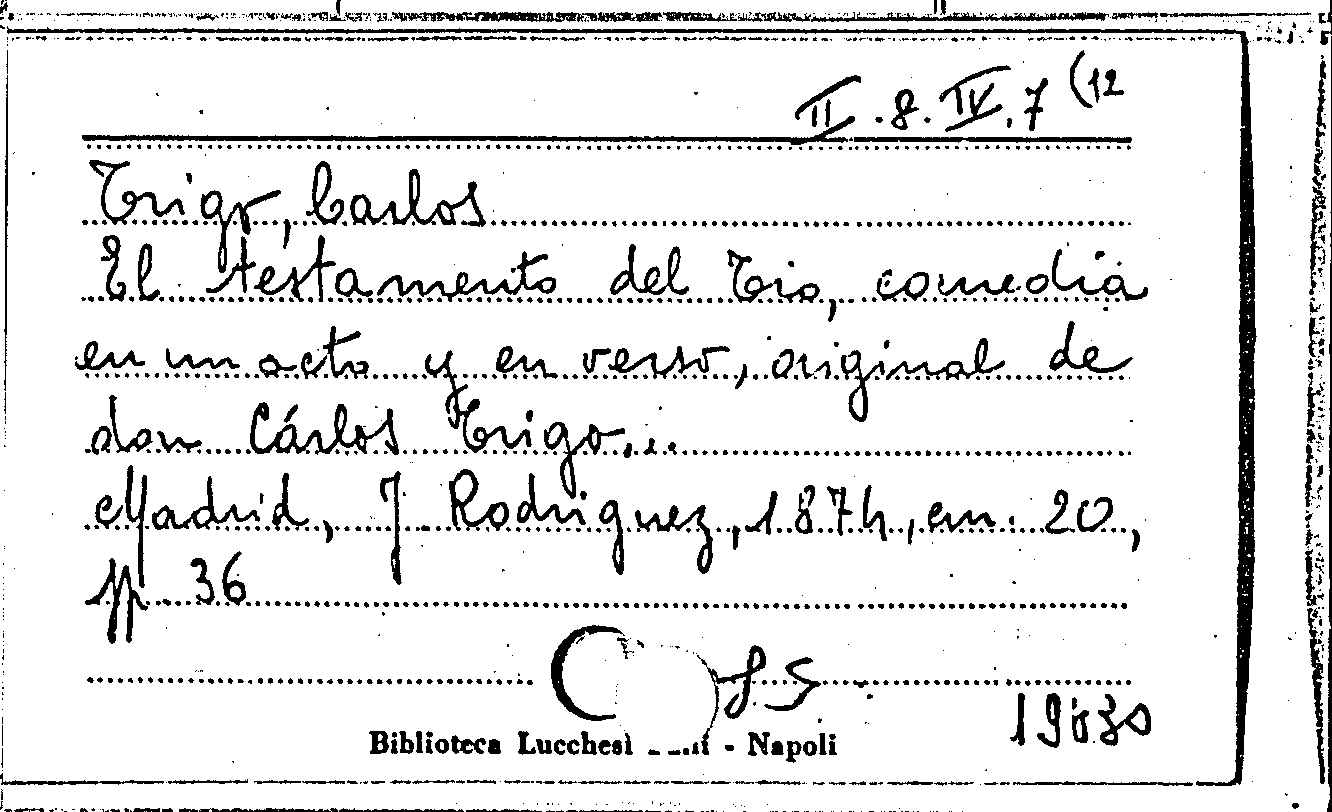 II.8.IV.7(12
Trigo, Carlos
El testamento del Tio, comedia
en un acto y en verso, original de
don Cárlos Trigo...
Madrid, J. Rodriguez, 1874, cm. 20,
pp 36
Biblioteca Lucchesi - Napoli